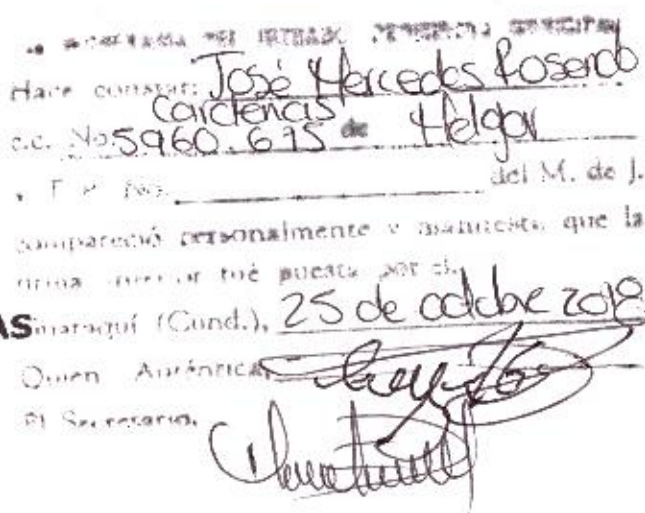 Hace constar: José Mercedes Rosendo
Cardenas
c.c. No. 5960.675 de Melgar
T. P. No. del M. de J.
compareció personalmente y manifestó que la
firma anterior fué puesta por él.
AS
(Cund.), 25 de octubre 2018
Quien Auténtica
El Secretario,